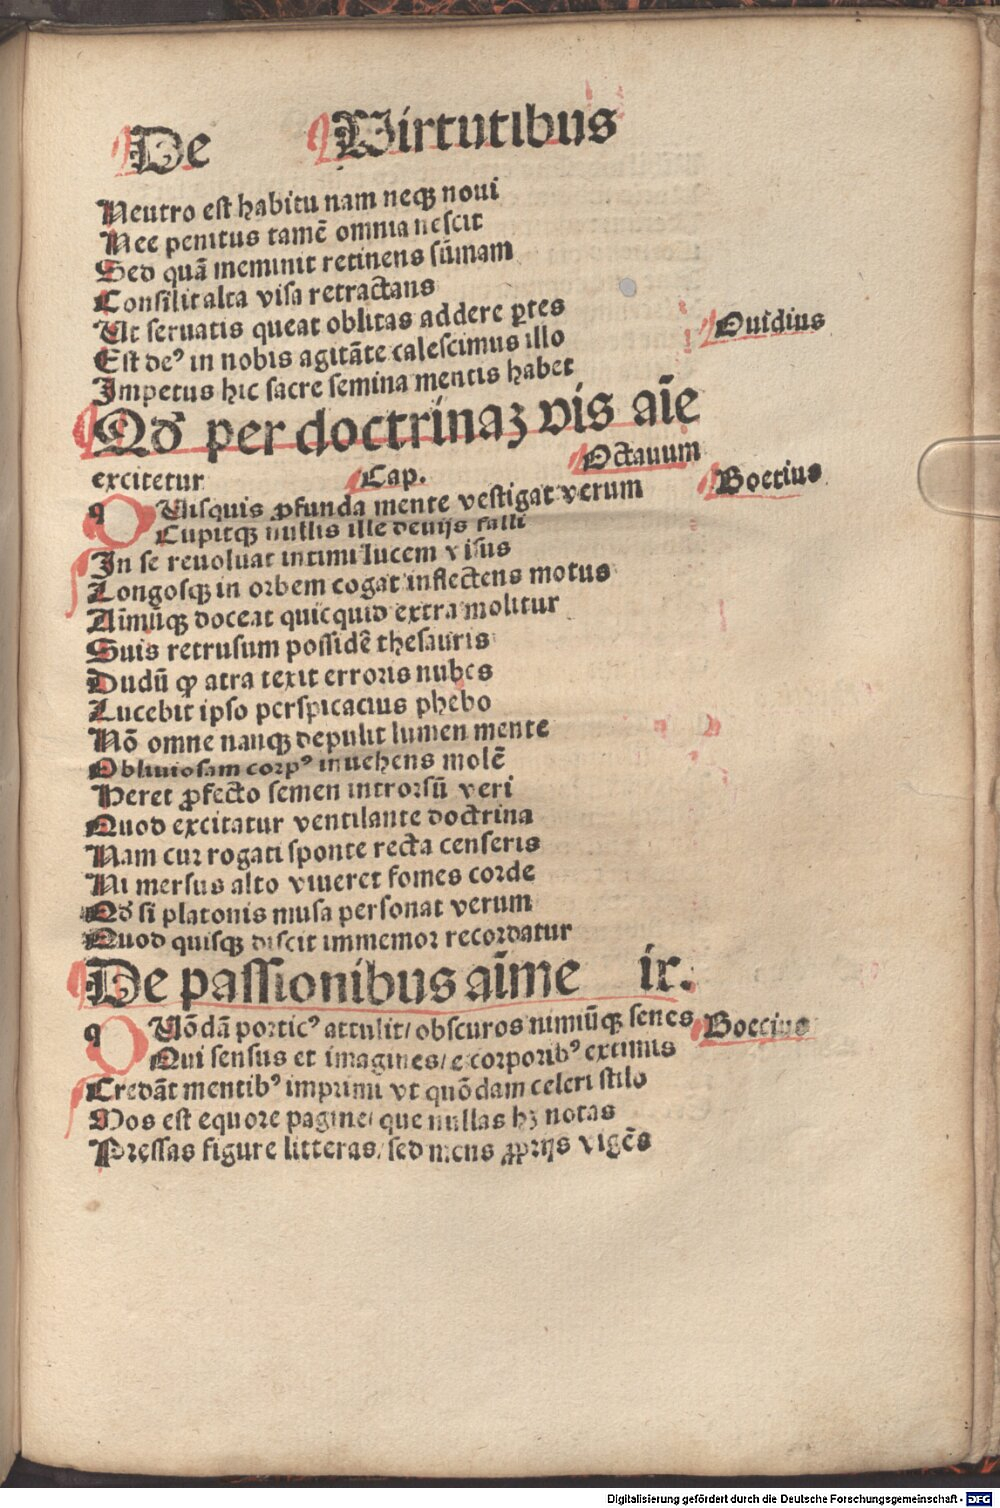 De Virtutibus
Neutro est habitu nam neqꝫ noui
Nec penitus tamē omnia nescit
Sed quā meminit retinens sūmam
Consilit alta visa retractans
Ut seruatis queat oblitas addere ꝑtes
Est deꝰ in nobis agitāte calescimus illo
Ouidius
Impetus hic sacre semina mentis habet
Qđ per doctrinaꝫ vis aīe
excitetur Cap. Octauum
qUisquis ꝓfunda mente vestigat verum
Boetius
Cupitqꝫ nullis ille deuijs falli
In se reuoluat intimi lucem visus
Longosqꝫ in orbem cogat inflectens motus
Aīmūqꝫ doceat quicquid extra molitur
Suis retrusum possidē thesauris
Dudū ꝙ atra texit erroris nubes
Lucebit ipso perspicacius phebo
Nō omne nanqꝫ depulit lumen mente
Obliuiosam corpꝰ inuehens molē
Heret ꝓfecto semen introrsū veri
Quod excitatur ventilante doctrina
Nam cur rogati sponte recta censeris
Ni mersus alto viueret fomes corde
Qđ si platonis musa personat verum
Quod quisqꝫ discit immemor recordatur
De passionibus aīme ix.
qUōdā porticꝰ attulit/ obscuros nimiūqꝫ senes
Boecius
Qui sensus et imagines/ e corporibꝰ extimis
Credāt mentibꝰ imprimi vt quōdam celeri stilo
Mos est equore pagine/ que nullas hꝫ notas
Pressas figure litteras/ sed mens ꝓprijs vigēs
Digitalisierung gefördert durch die Deutsche Forschungsgemeinschaft - DFG